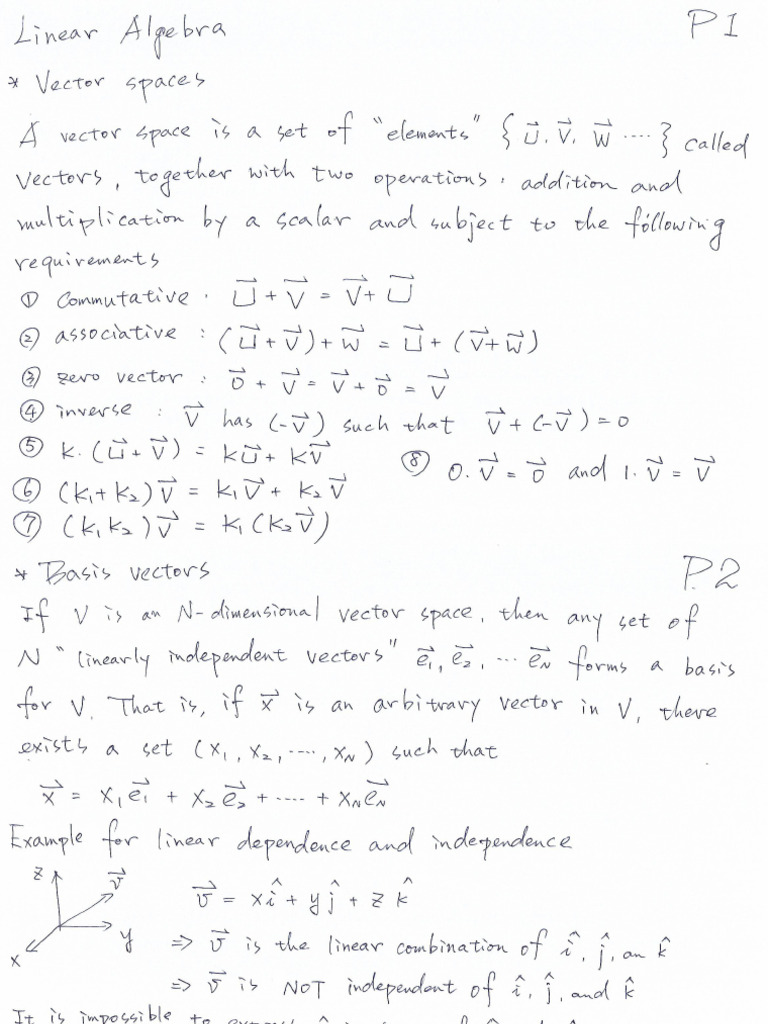 Linear Algebra P1
* Vector spaces
A vector space is a set of "elements" { U⃗, V⃗, W⃗ ···· } called
vectors, together with two operations, addition and
multiplication by a scalar and subject to the following
requirements
① Commutative. U⃗ + V⃗ = V⃗ + U⃗
② associative : (U⃗ + V⃗) + W⃗ = U⃗ + (V⃗ + W⃗)
③ zero vector : 0⃗ + V⃗ = V⃗ + 0⃗ = V⃗
④ inverse : V⃗ has (-V⃗) such that V⃗ + (-V⃗) = 0
⑤ k. (U⃗ + V⃗) = kU⃗ + kV⃗ ⑧ 0. V⃗ = 0⃗ and 1. V⃗ = V⃗
⑥ (k₁ + k₂) V⃗ = k₁V⃗ + k₂V⃗
⑦ (k₁k₂) V⃗ = k₁ (k₂V⃗)
* Basis vectors P.2
If V is an N-dimensional vector space, then any set of
N "linearly independent vectors" e⃗₁, e⃗₂, ··· e⃗N forms a basis
for V. That is, if x⃗ is an arbitrary vector in V, there
exists a set (x₁, x₂, ····, xN) such that
x⃗ = x₁e⃗₁ + x₂e⃗₂ + ···· + xNe⃗N
Example for linear dependence and independence
z v⃗ y x
v⃗ = xî + yĵ + z k̂
⇒ v⃗ is the linear combination of î, ĵ, an k̂
⇒ v⃗ is NOT independent of î, ĵ, and k̂
It is impossible to